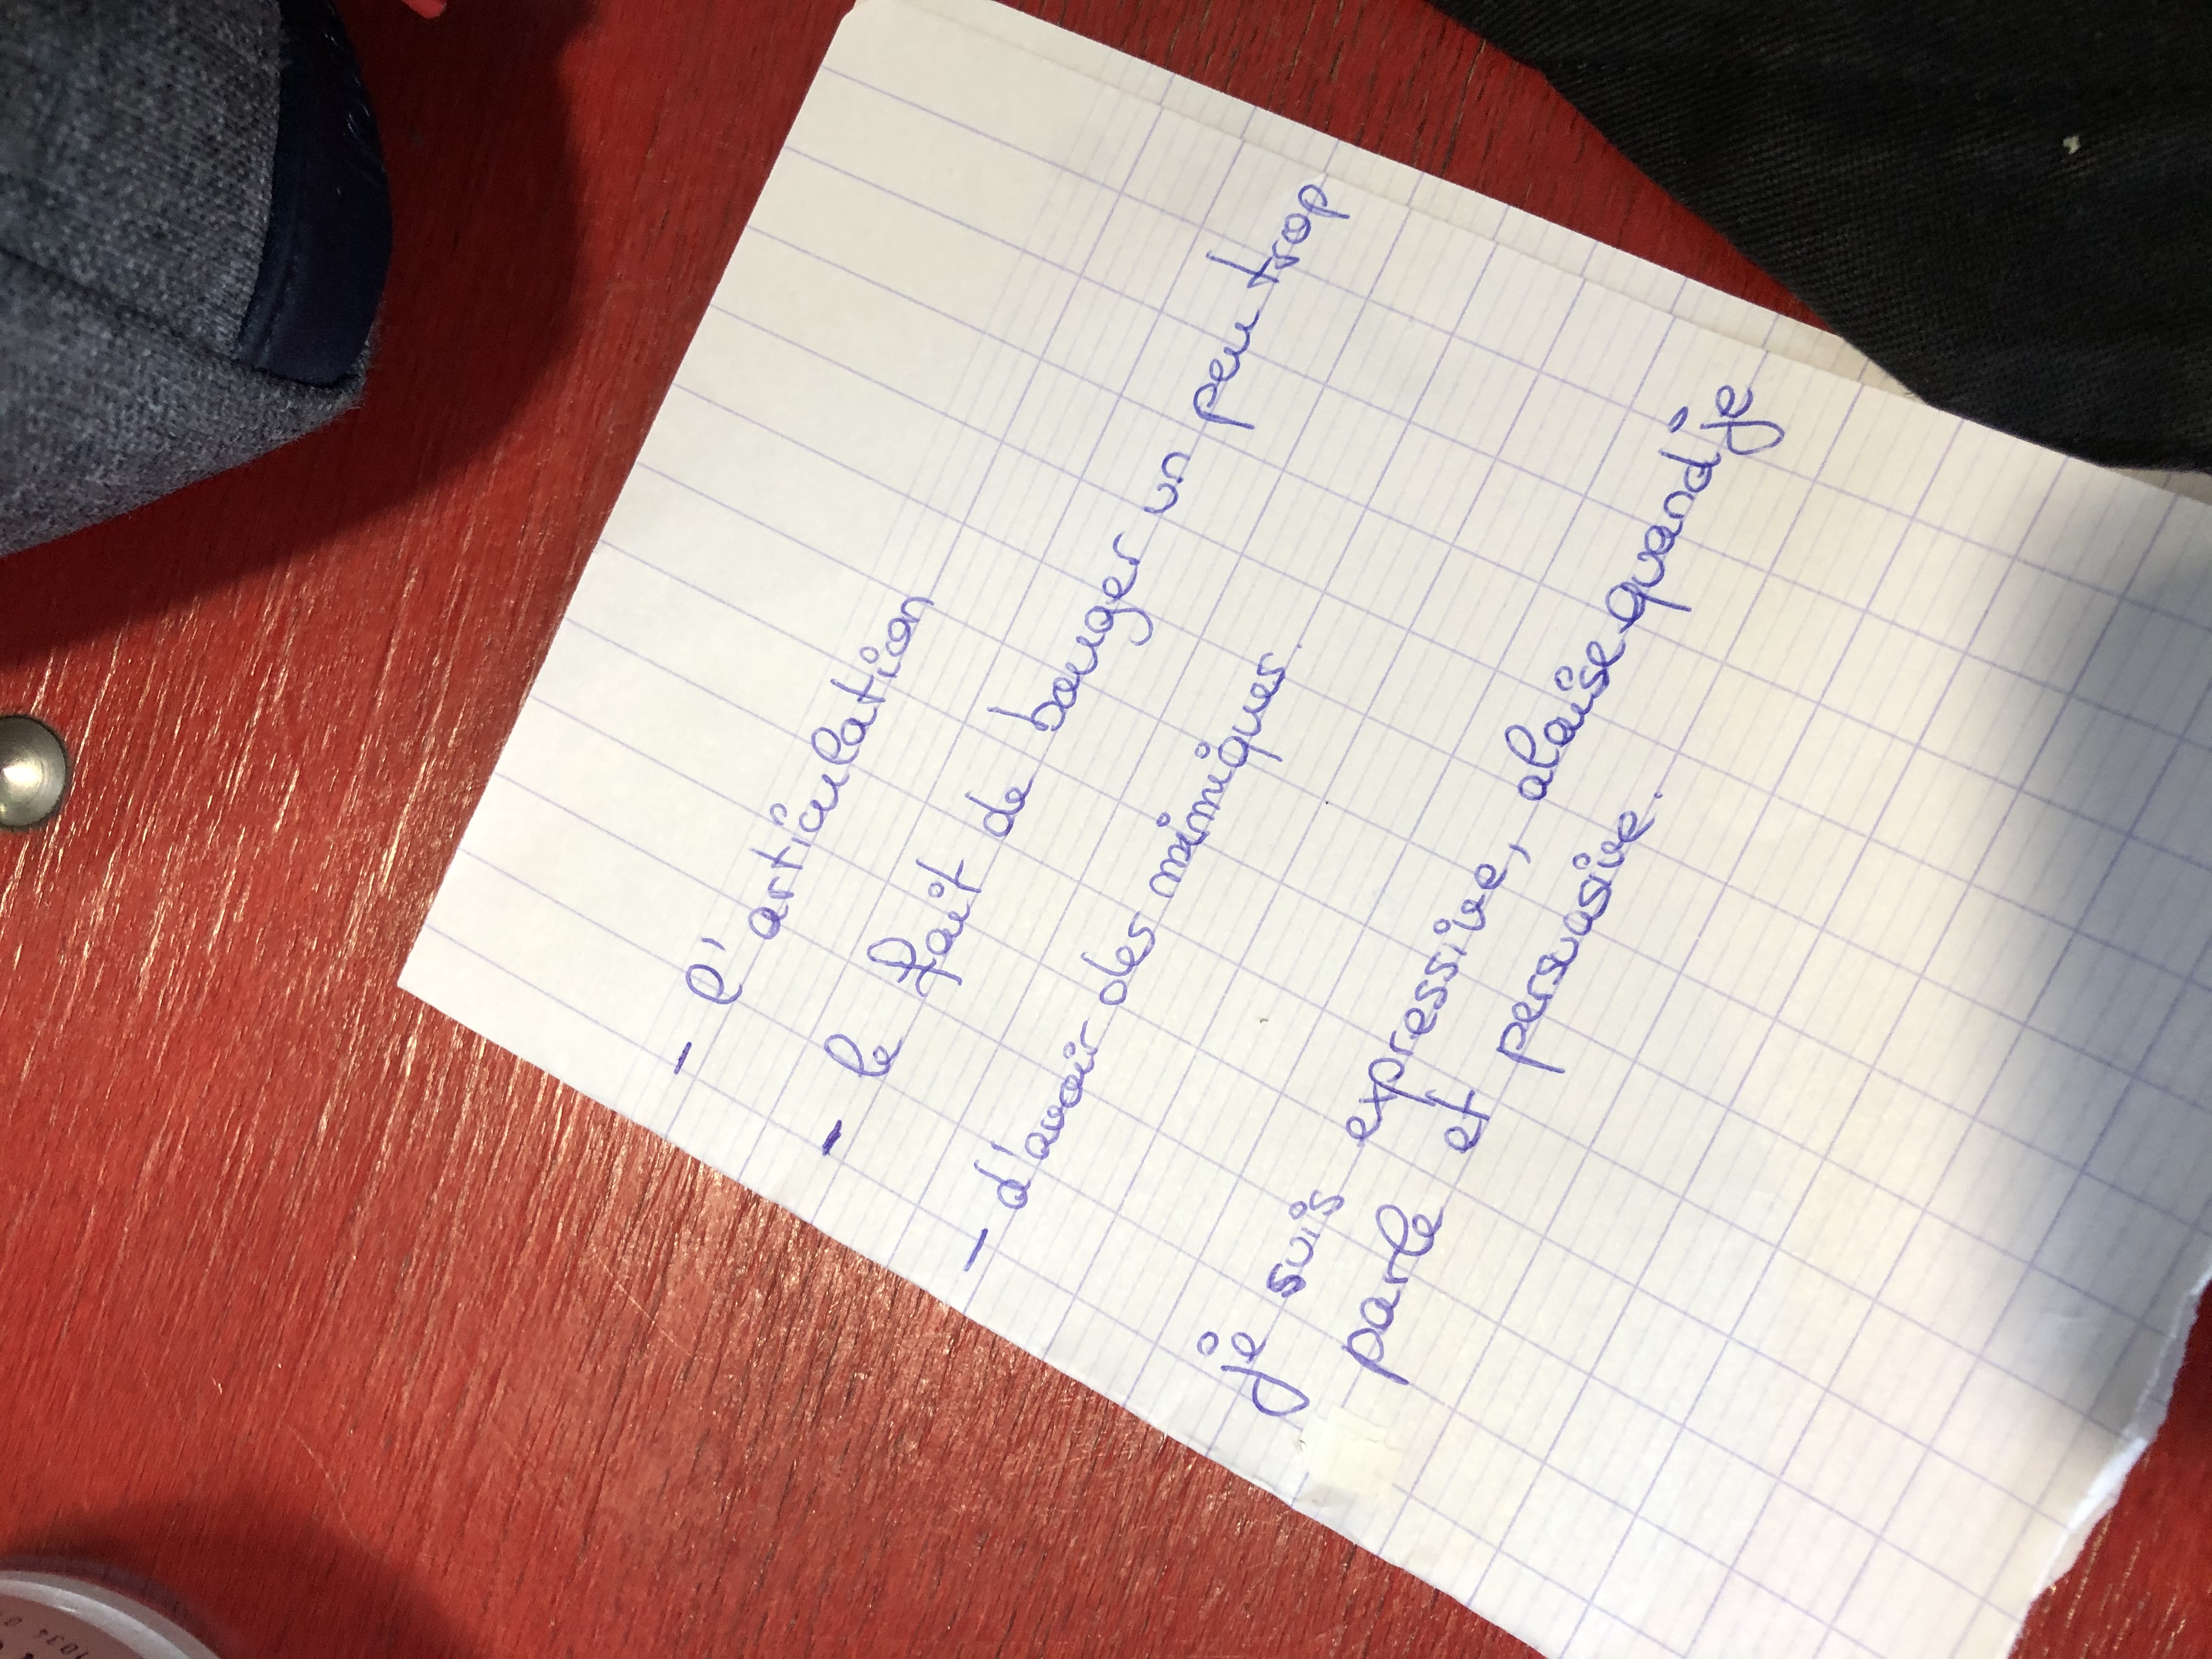 - l'articulation
- le fait de bouger un peu trop
- d'avoir des mimiques.
je suis expressive, alaise quand je
parle et persuasive.